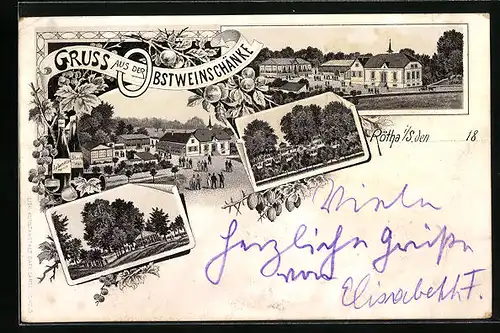 GRUSS AUS DER OBSTWEINSCHÄNKE
Rötha i/S. den 18
Viele
herzliche Grüße
von
Elisabeth F.